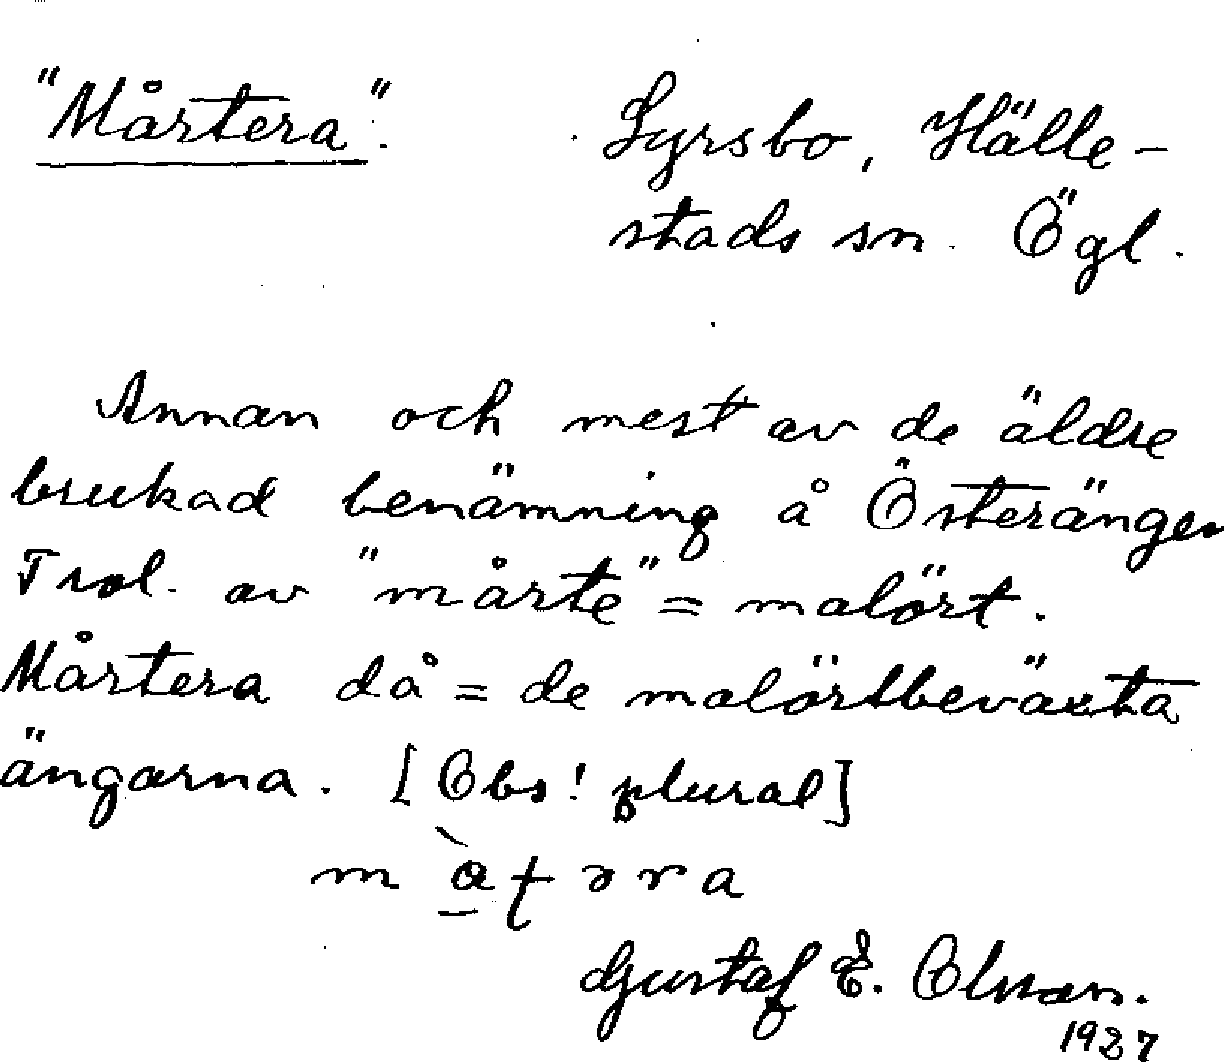 "Mårtera". Lyrsbo, Hälle-
stads sn. Ögl.
Annan och mest av de äldre
brukad benämning å Österängen
Trol. av "mårte" = malört.
Mårtera då = de malörtbeväxta
ängarna. [Obs! plural]
Gustaf E. Olman.
1927